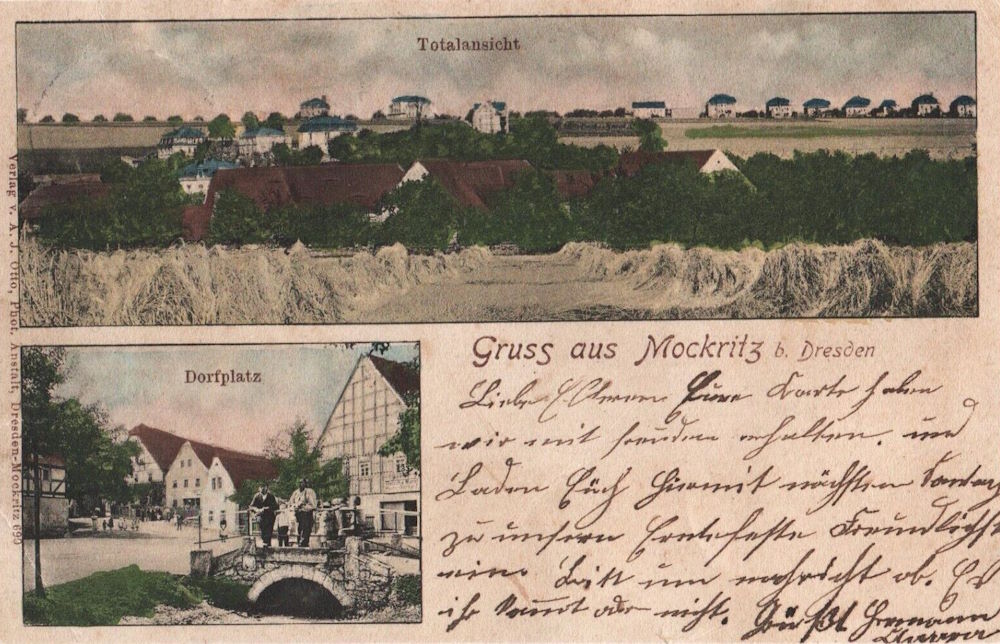 Totalansicht
Verlag v. A. J. Otto, Phot. Anstalt, Dresden-Mockritz 690
Dorfplatz
Gruss aus Mockritz b. Dresden
Liebe Eltern Eure Karte haben
wir mit freuden erhalten. und
Laden Euch hiermit nächsten Sontag
zu unsern Erntefeste Freundlichst
ein. Bitt um nachricht ob.
ihr komt oder nicht. Grüßt Hermann